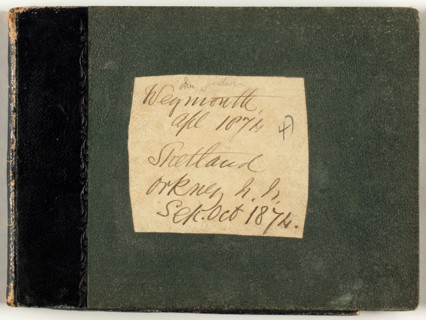 Weymouth,
Apl 1874
Shetland
Orkney h. h.
Sep. Oct 1874.